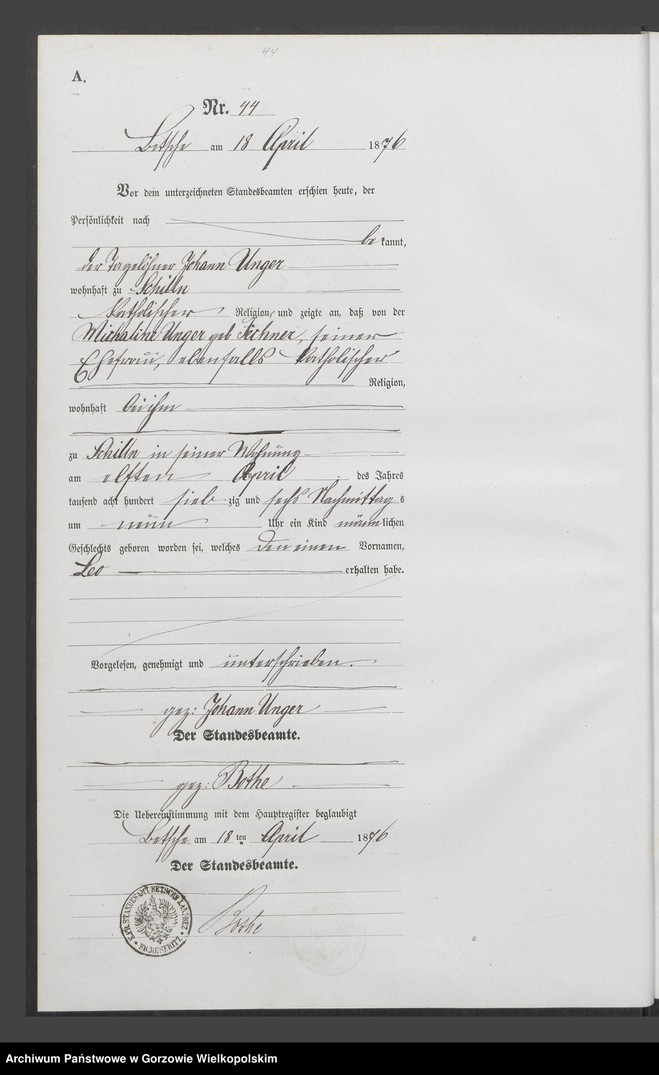 44
A.
Nr. 44
Betsche am 18 April 1876
Vor dem unterzeichneten Standesbeamten erschien heute, der
Persönlichkeit nach
be kannt,
der Tagelöhner Johann Unger
wohnhaft zu Schilln
katholischer Religion, und zeigte an, daß von der
Michaline Unger geb Fechner, seiner
Ehefrau, ebenfalls katholischer
Religion,
wohnhaft bei ihm
zu Schilln in seiner Wohnung
am elften April des Jahres
tausend acht hundert sieb zig und sechs Nachmittag s
um neun Uhr ein Kind männ lichen
Geschlechts geboren worden sei, welches den einen Vornamen,
Leo erhalten habe.
Vorgelesen, genehmigt und unterschrieben.
gez: Johann Unger
Der Standesbeamte.
gez: Bothe
Die Uebereinstimmung mit dem Hauptregister beglaubigt
Betsche am 18 ten April 1876
Der Standesbeamte.
Bothe
KPR. STANDESAMT BETSCHE LANDBEZ.
KR. MESERITZ
Archiwum Państwowe w Gorzowie Wielkopolskim